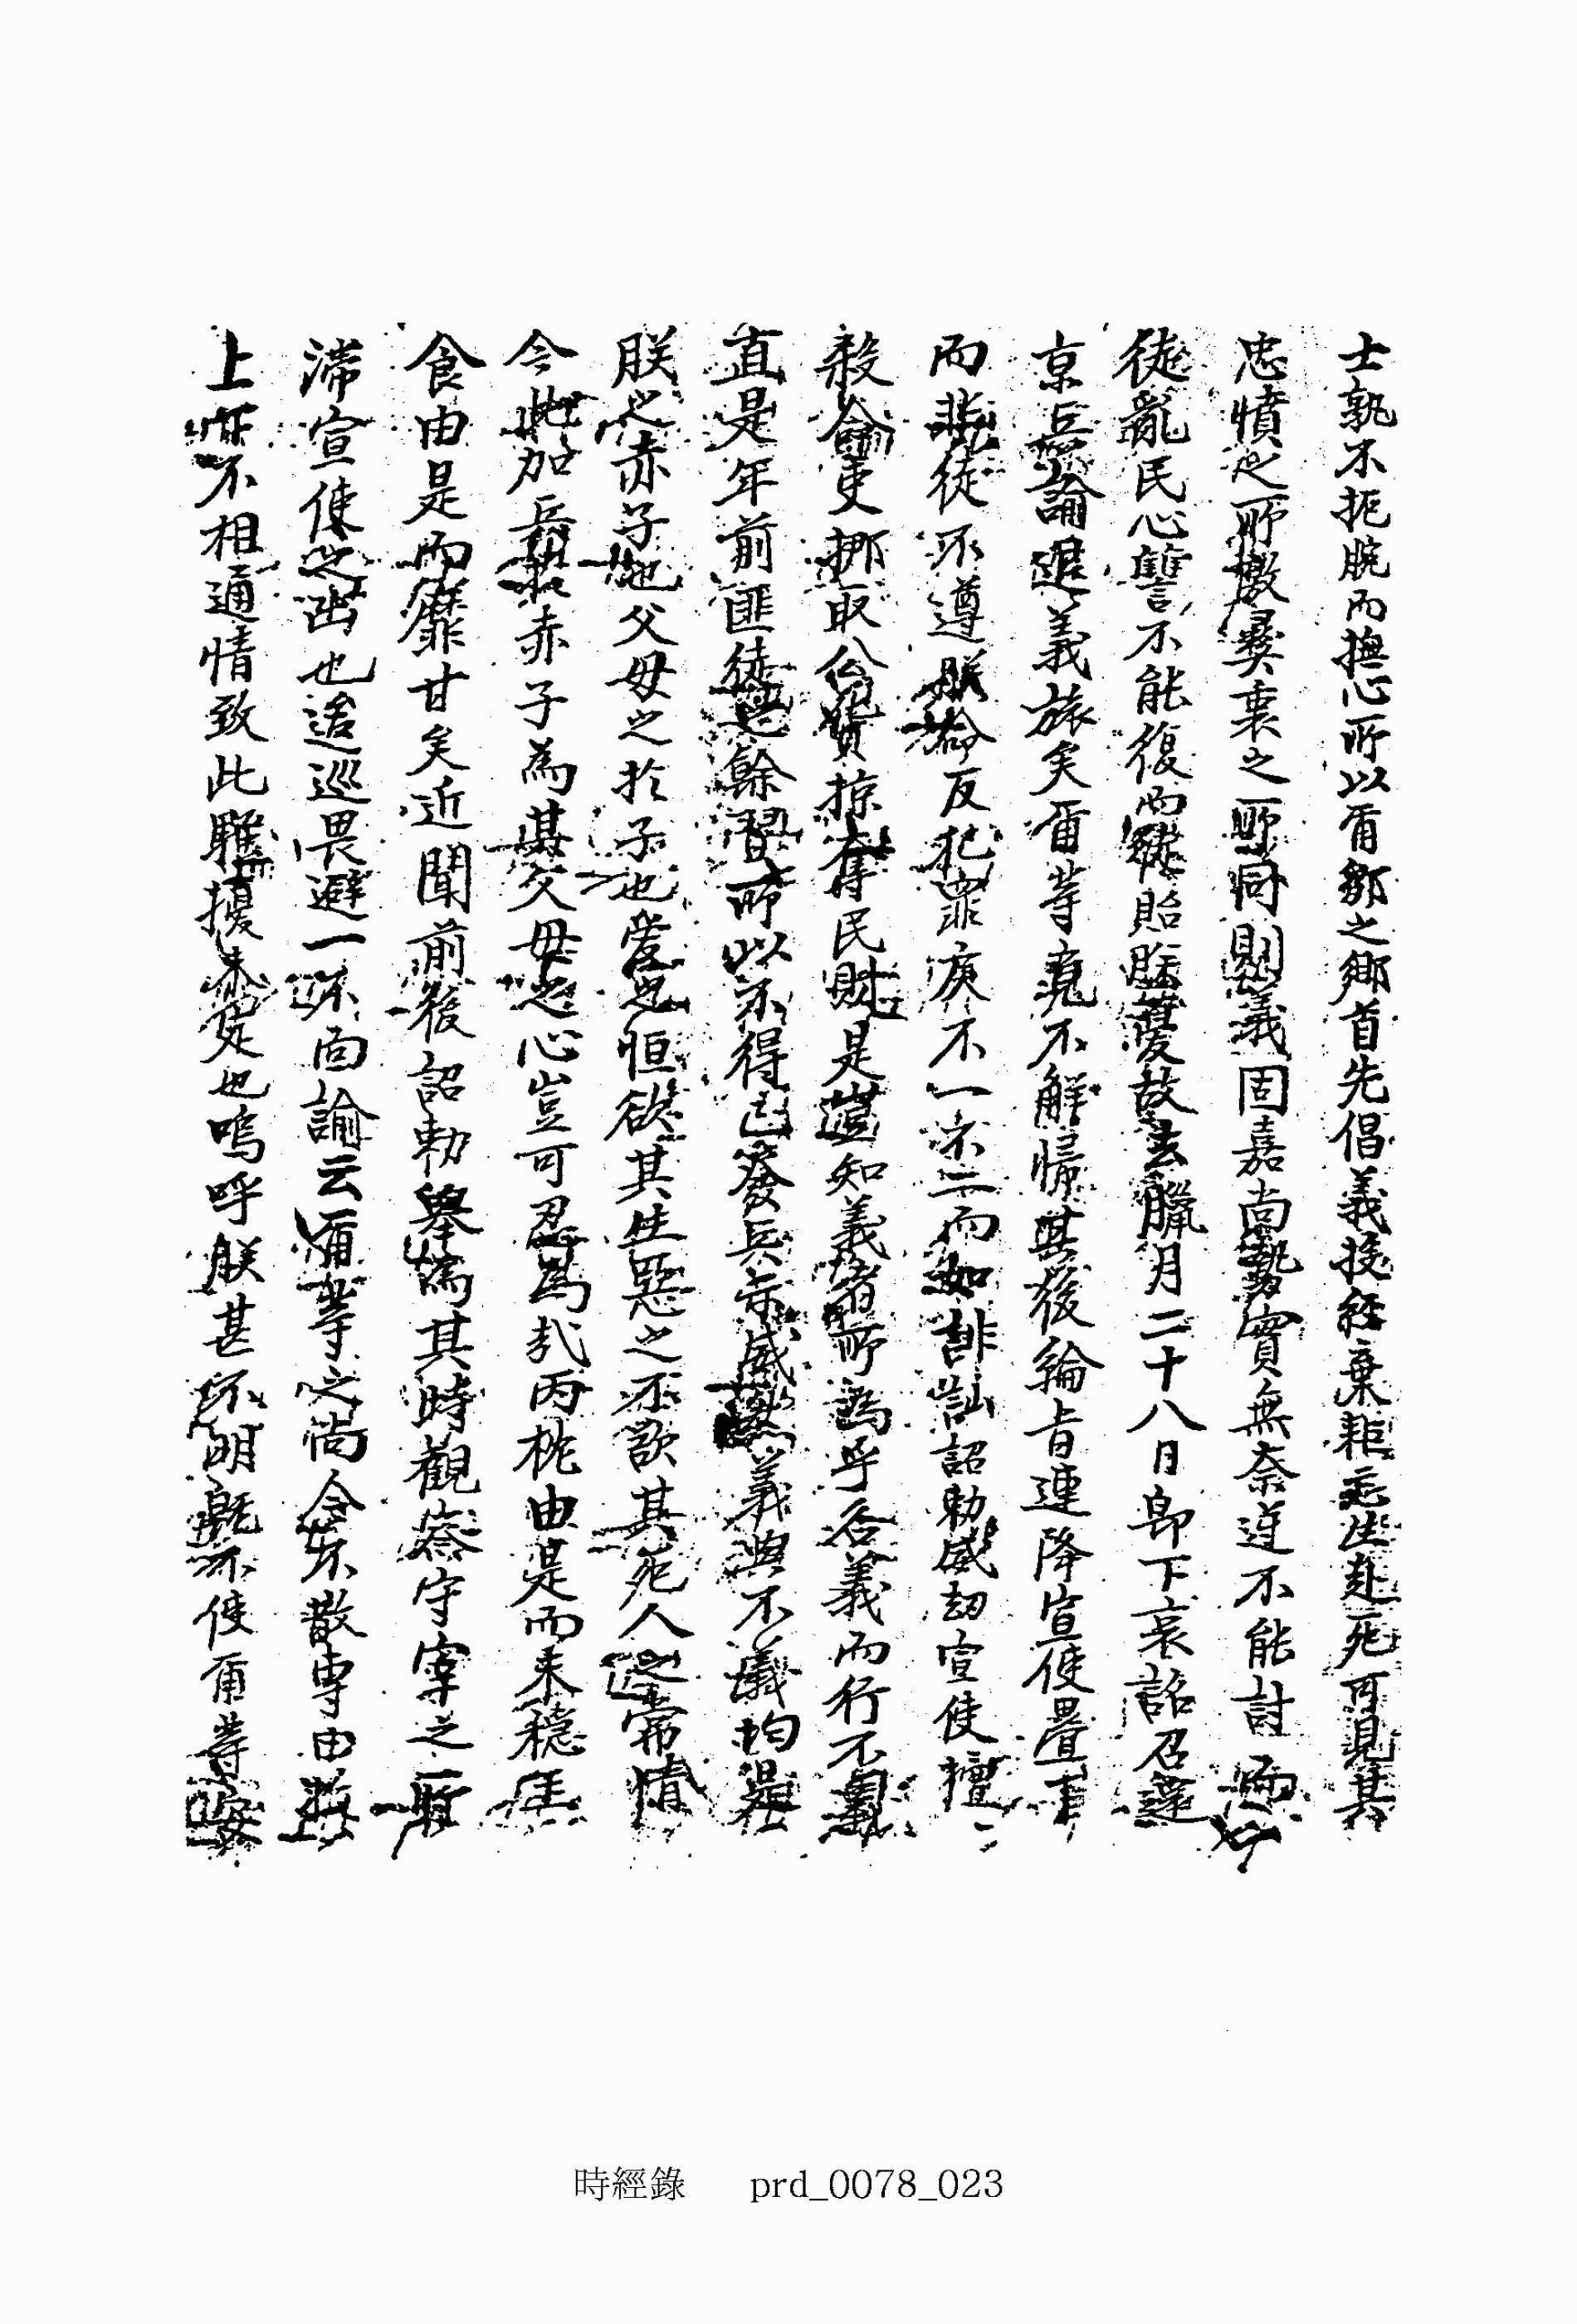 士孰不扼腕而撫心所以甭鄒之鄉首先倡義投經棄耟忘生赴死可見其
忠憤之所激彛衷之所同則義固嘉尚勢實無奈遂不能討而
徒亂民心讐不能復而徒貽朕憂故去臘月二十八日即下哀詔召還
京兵諭退義旅矣甭等竟不解歸其後綸旨連降宣使疊下
而匪徒不遵朕命反犯罪戾不一不二而如誹訕詔勅威劫宣使擅
殺命吏挪取公貨掠奪民財是豈知義者所爲乎名義而行不義
直是年前匪徒之餘習所以不得已發兵示威然義與不義均是
朕之赤子也父母之於子也愛之恒欲其生惡之不欲其死人之常情
今此加兵於赤子為其父母之心豈可忍爲哉丙枕由是而未穩玉
食由是而靡甘矣近聞前後詔勅舉爲其時觀察守宰之所
滯宣使之出也逡巡畏避一不面諭云甭等之尚今不散専由於
上下不相通情致此騷擾未定也嗚呼朕甚不明既不使甭等安
時經錄 prd_0078_023